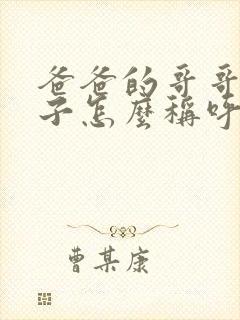 爸爸的哥哥
子怎麼稱呼
曹某康